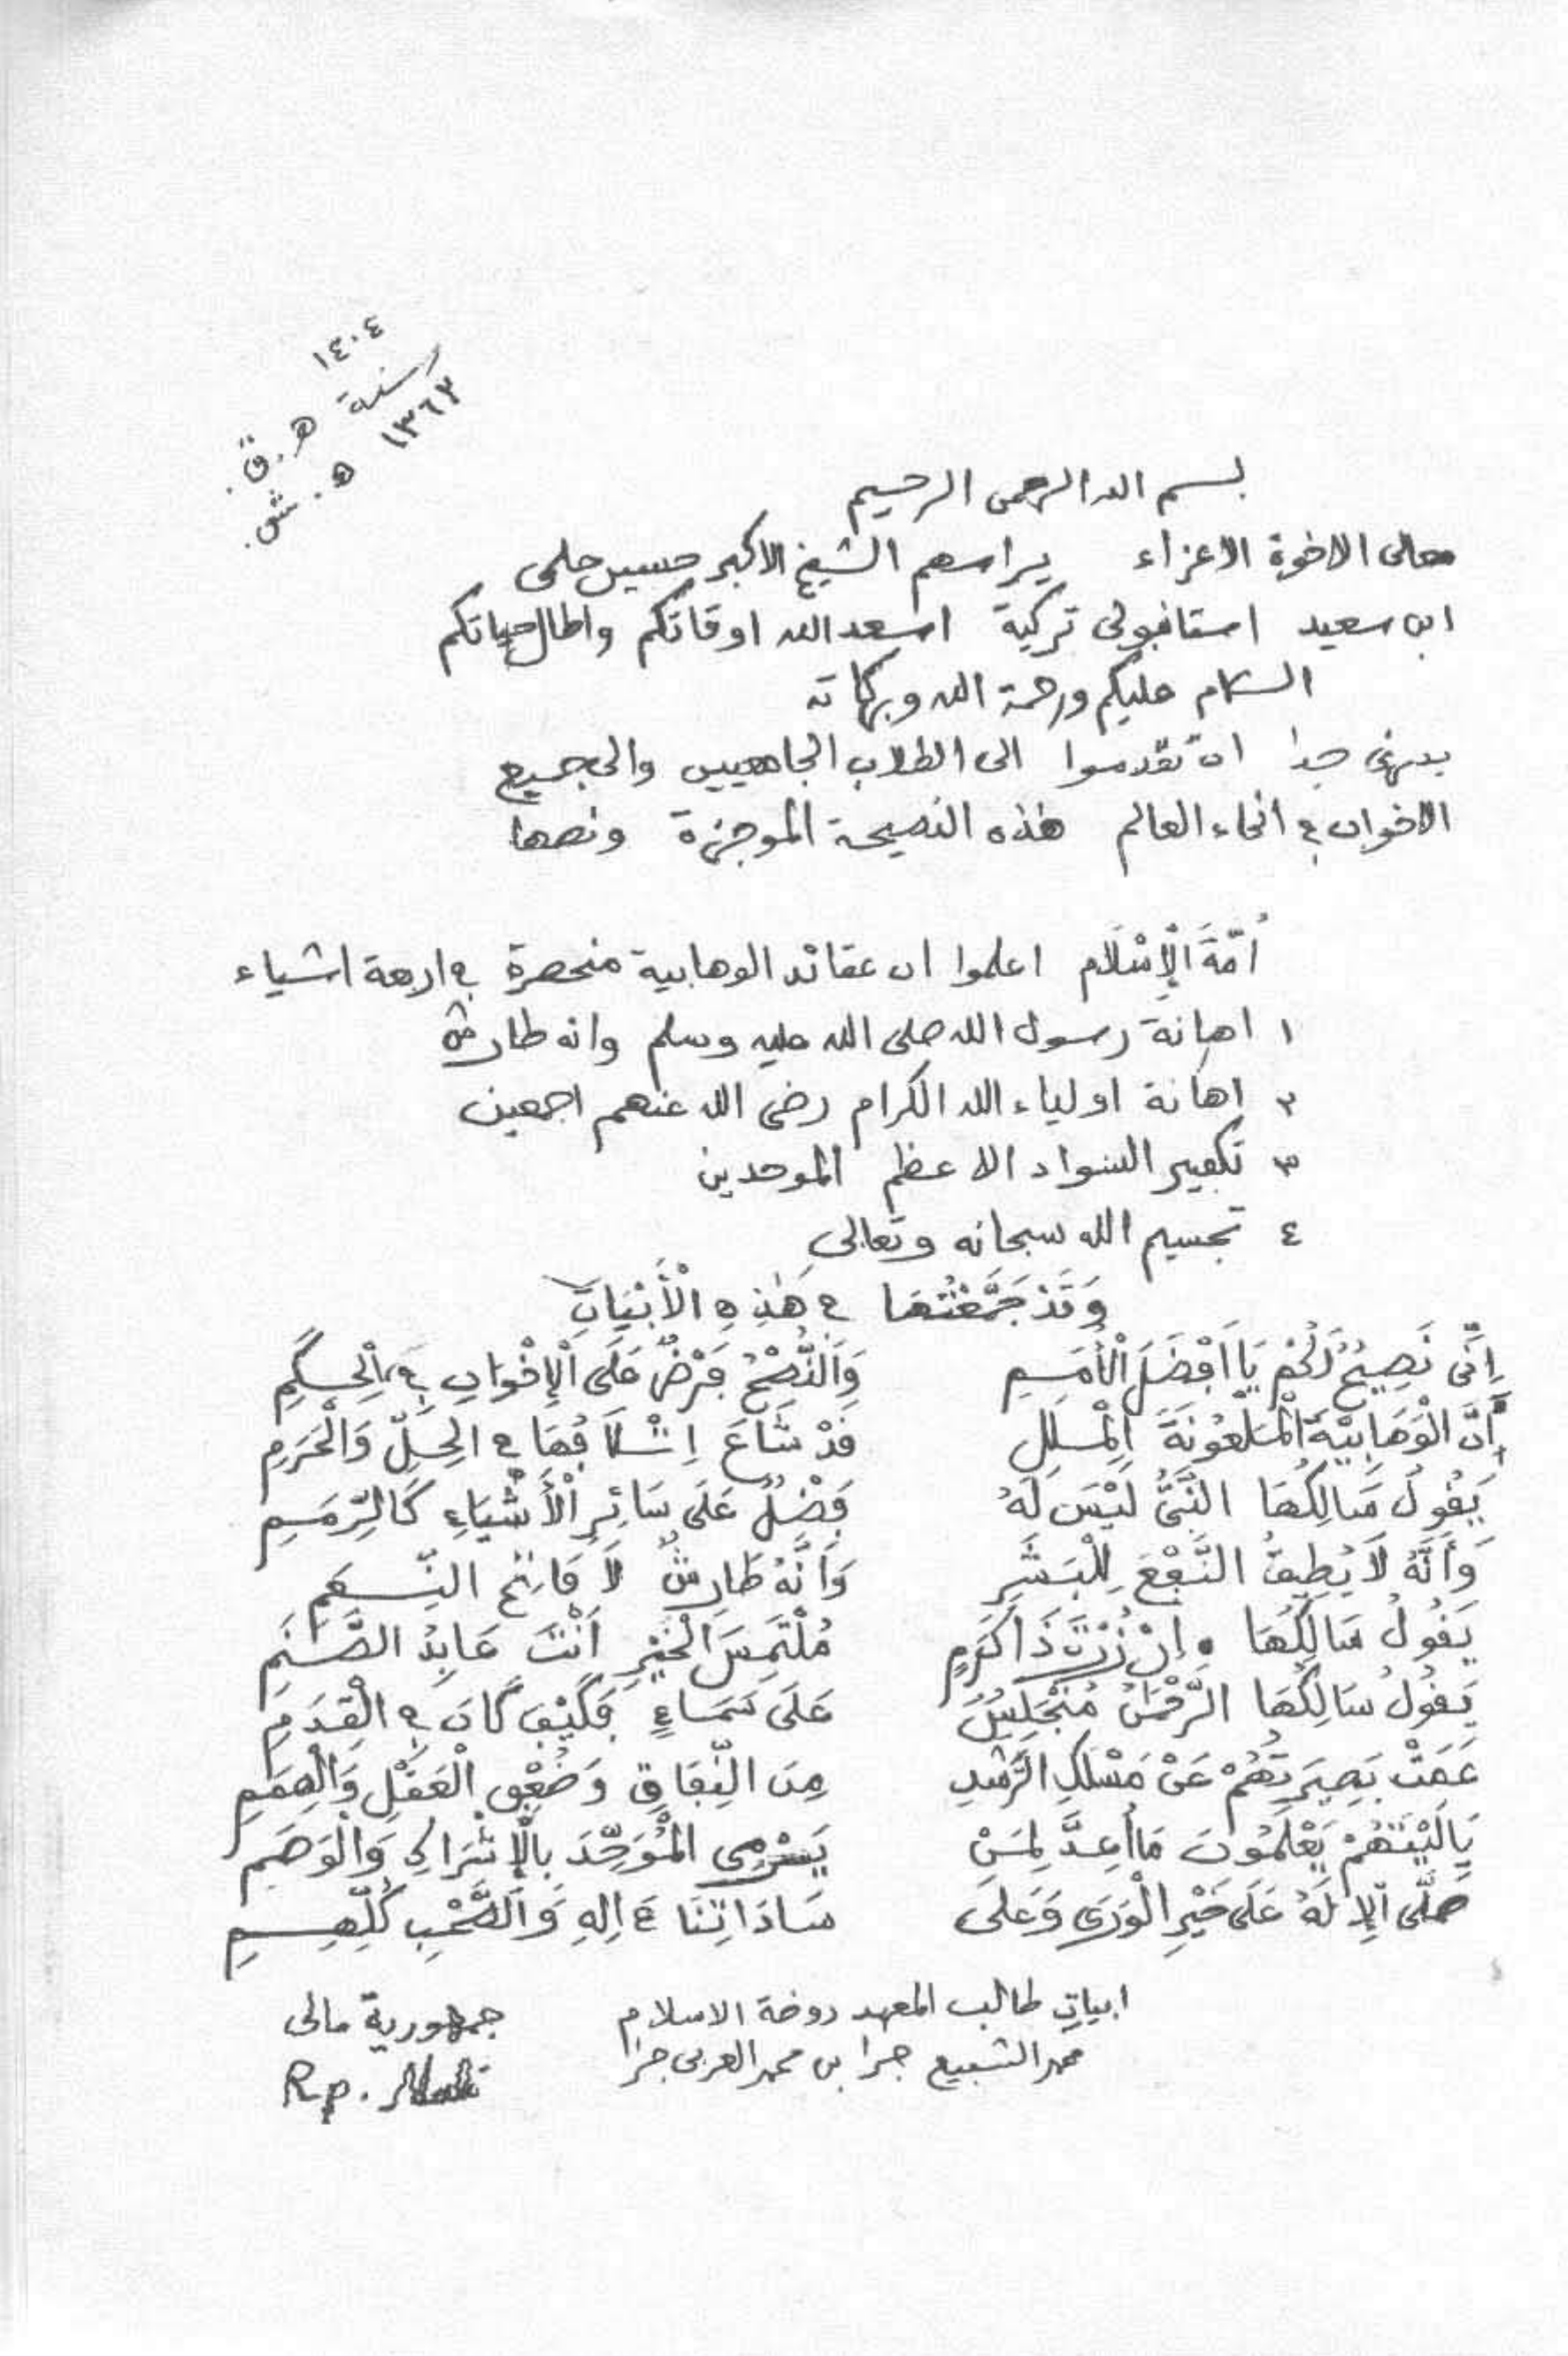 ١٤٠٤
سنة ه.ق.
١٣٦٢ ه.ش.
بسم الله الرحمن الرحيم
معالى الاخوة الاعزاء يراسهم الشيخ الاكبر حسين حلمى
ابن سعيد استانبولى تركية اسعد الله اوقاتكم واطال حياتكم
السلام عليكم ورحمة الله وبركاته
يسرنى جدا ان تقدموا الى الطلاب الجامعيين والى جميع
الاخوان فى انحاء العالم هذه النصيحة الموجزة ونصها
اُمَّةَ الْإِسْلَام اعلموا ان عقائد الوهابية منحصرة فى اربعة اشياء
١ اهانة رسول الله صلى الله عليه وسلم وانه طارش
٢ اهانة اولياء الله الكرام رضى الله عنهم اجمعين
٣ تكفير السواد الاعظم الموحدين
٤ تجسيم الله سبحانه وتعالى
وَقَدْ جَمَّعْتُهَا فى هَٰذِهِ الْأَبْيَاتِ
اِنِّى نَصِيحٌ لَكُمْ يَا اَفْضَلَ الْأُمَمِ وَالنُّصْحُ فَرْضٌ عَلَى الْإِخْوَانِ فِى الْحِكَمِ
اِنَّ الْوَهَابِيَّةَ الْمَلْعُونَةَ الْمِلَلِ قَدْ شَاعَ اِسْلَافُهَا فى الحِلِّ وَالْحَرَمِ
يَقُولُ سَالِكُهَا النَّبِىُّ لَيْسَ لَهُ فَضْلٌ عَلَى سَائِرِ الْأَشْيَاءِ كَالرِّمَمِ
وَأَنَّهُ لَا يُطِيقُ النَّفْعَ لِلْبَشَرِ وَاَنَّهُ طَارِشٌ لَا فَاتِحُ النِّعَمِ
يَقُولُ سَالِكُهَا اِنْ زُرْتَ ذَا كَرَمٍ مُلْتَمِسَ الْخَيْرِ اَنْتَ عَابِدُ الصَّنَمِ
يَقُولُ سَالِكُهَا الرَّحْمَنُ مُنْجَلِسٌ عَلَى سَمَاءٍ فَكَيْفَ كَانَ فى الْقِدَمِ
عَمَتْ بَصِيرَتُهُمْ عَنْ مَسْلَكِ الرُّشْدِ مِنَ النِّفَاقِ وَضُعْفِ الْعَقْلِ وَالْهِمَمِ
يَا لَيْتَهُمْ يَعْلَمُونَ مَا اُعِدَّ لِمَنْ يَرْمِى الْمُوَحِّدَ بِالْإِشْرَاكِ وَالْوَهَمِ
صَلَّى الْإِلَهُ عَلَى خَيْرِ الْوَرَى وَعَلَى سَادَاتِنَا ءَالِهِ وَالصَّحْبِ كُلِّهِمِ
ابيات طالب المعهد روضة الاسلام جمهورية مالى
محمد الشفيع جرا بن محمد العربى جرا R.p. Mali